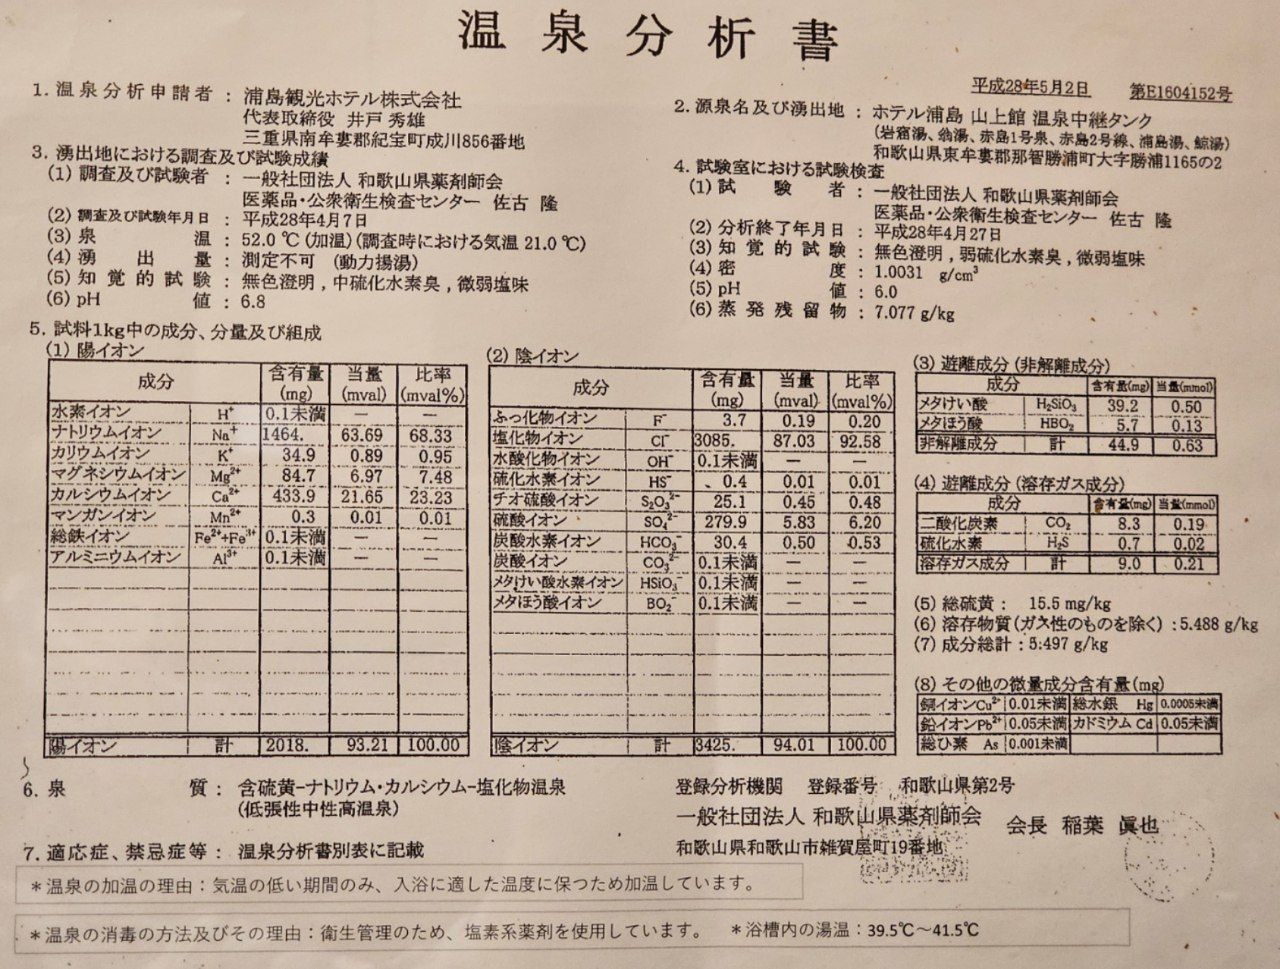 温泉分析書
平成28年5月2日 第E1604152号
1. 温泉分析申請者 : 浦島観光ホテル株式会社
代表取締役 井戸 秀雄
三重県南牟婁郡紀宝町成川856番地
2. 源泉名及び湧出地 : ホテル浦島 山上館 温泉中継タンク
(岩窟湯、翁湯、赤島1号泉、赤島2号線、浦島湯、鯨湯)
和歌山県東牟婁郡那智勝浦町大字勝浦1165の2
3. 湧出地における調査及び試験成績
(1) 調査及び試験者 : 一般社団法人 和歌山県薬剤師会
医薬品・公衆衛生検査センター 佐古 隆
(2) 調査及び試験年月日 : 平成28年4月7日
(3) 泉温 : 52.0 ℃ (加温) (調査時における気温 21.0 ℃)
(4) 湧出量 : 測定不可 (動力揚湯)
(5) 知覚的試験 : 無色澄明 , 中硫化水素臭 , 微弱塩味
(6) pH値 : 6.8
4. 試験室における試験検査
(1) 試験者 : 一般社団法人 和歌山県薬剤師会
医薬品・公衆衛生検査センター 佐古 隆
(2) 分析終了年月日 : 平成28年4月27日
(3) 知覚的試験 : 無色澄明 , 弱硫化水素臭 , 微弱塩味
(4) 密度 : 1.0031 g/cm³
(5) pH値 : 6.0
(6) 蒸発残留物 : 7.077 g/kg
5. 試料1kg中の成分、分量及び組成
(1) 陽イオン
成分 含有量(mg) 当量(mval) 比率(mval%)
水素イオン H⁺ 0.1未満 — —
ナトリウムイオン Na⁺ 1464. 63.69 68.33
カリウムイオン K⁺ 34.9 0.89 0.95
マグネシウムイオン Mg²⁺ 84.7 6.97 7.48
カルシウムイオン Ca²⁺ 433.9 21.65 23.23
マンガンイオン Mn²⁺ 0.3 0.01 0.01
総鉄イオン Fe²⁺+Fe³⁺ 0.1未満 — —
アルミニウムイオン Al³⁺ 0.1未満 — —
陽イオン 計 2018. 93.21 100.00
(2) 陰イオン
成分 含有量(mg) 当量(mval) 比率(mval%)
ふっ化物イオン F⁻ 3.7 0.19 0.20
塩化物イオン Cl⁻ 3085. 87.03 92.58
水酸化物イオン OH⁻ 0.1未満 — —
硫化水素イオン HS⁻ 0.4 0.01 0.01
チオ硫酸イオン S₂O₃²⁻ 25.1 0.45 0.48
硫酸イオン SO₄²⁻ 279.9 5.83 6.20
炭酸水素イオン HCO₃⁻ 30.4 0.50 0.53
炭酸イオン CO₃²⁻ 0.1未満 — —
メタけい酸水素イオン HSiO₃⁻ 0.1未満 — —
メタほう酸イオン BO₂⁻ 0.1未満 — —
陰イオン 計 3425. 94.01 100.00
(3) 遊離成分 (非解離成分)
成分 含有量(mg) 当量(mmol)
メタけい酸 H₂SiO₃ 39.2 0.50
メタほう酸 HBO₂ 5.7 0.13
非解離成分 計 44.9 0.63
(4) 遊離成分 (溶存ガス成分)
成分 含有量(mg) 当量(mmol)
二酸化炭素 CO₂ 8.3 0.19
硫化水素 H₂S 0.7 0.02
溶存ガス成分 計 9.0 0.21
(5) 総硫黄 : 15.5 mg/kg
(6) 溶存物質 (ガス性のものを除く) : 5.488 g/kg
(7) 成分総計 : 5.497 g/kg
(8) その他の微量成分含有量(mg)
銅イオンCu²⁺ 0.01未満 総水銀 Hg 0.0005未満
鉛イオンPb²⁺ 0.05未満 カドミウム Cd 0.05未満
総ひ素 As 0.001未満
6. 泉質 : 含硫黄-ナトリウム・カルシウム-塩化物温泉
(低張性中性高温泉)
7. 適応症、禁忌症等 : 温泉分析書別表に記載
登録分析機関 登録番号 和歌山県第2号
一般社団法人 和歌山県薬剤師会 会長 稲葉 眞也
和歌山県和歌山市雑賀屋町19番地
*温泉の加温の理由:気温の低い期間のみ、入浴に適した温度に保つため加温しています。
*温泉の消毒の方法及びその理由:衛生管理のため、塩素系薬剤を使用しています。 *浴槽内の湯温:39.5℃~41.5℃